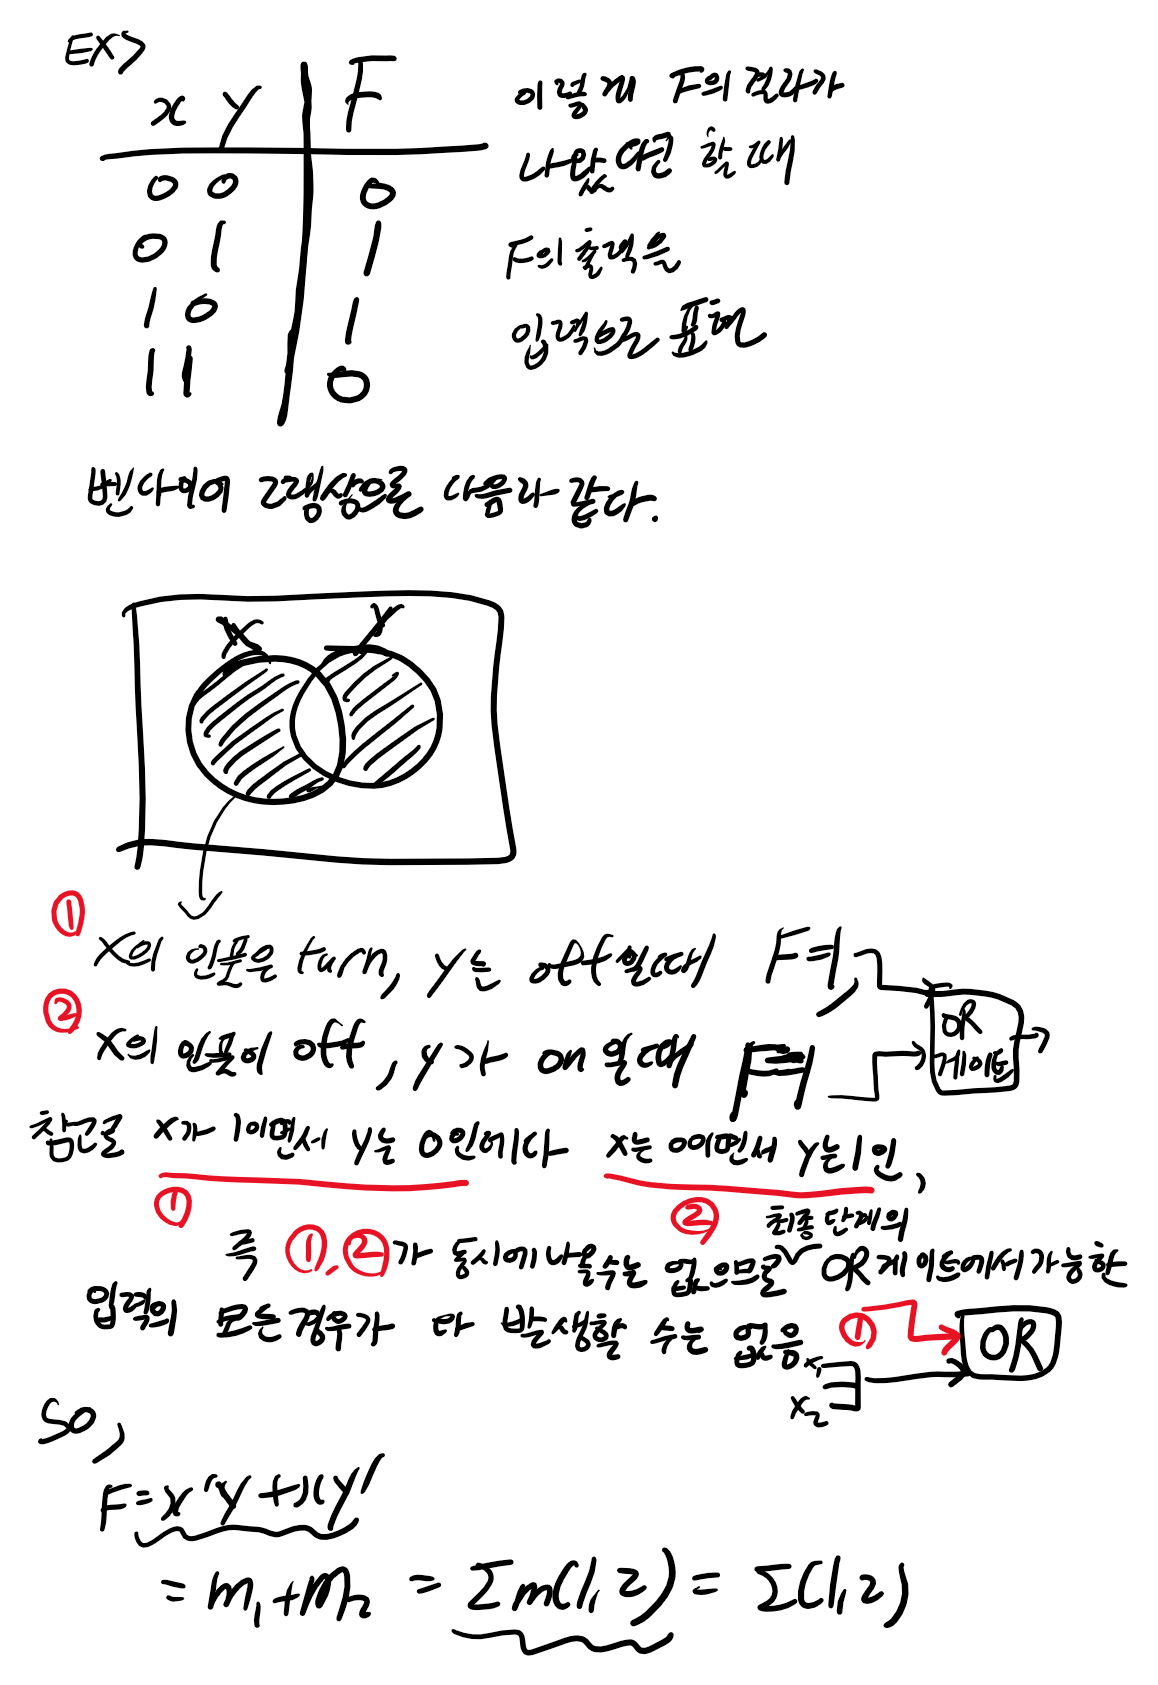 EX>
x y F
0 0 0
0 1 1
1 0 1
1 1 0
이렇게 F의 결과가
나왔다면 할때
F의 출력은
입력으로 표현
벤다이어그램상으로 다음과 같다.
x y
① x의 인풋은 turn, y는 off일때 F=1,
② x의 인풋이 off, y가 on일때 F=1
OR
게이트
참고로 x가 1이면서 y는 0인에다 x는 0이면서 y는 1인,
① ②
최종 단계의
즉 ①, ②가 동시에 나올수는 없으므로 OR게이트에서 가능한
입력의 모든경우가 다 발생할 수는 없음
① OR
x₁
x₂
So,
F = x'y + xy'
= m₁ + m₂ = Σm(1, 2) = Σ(1, 2)